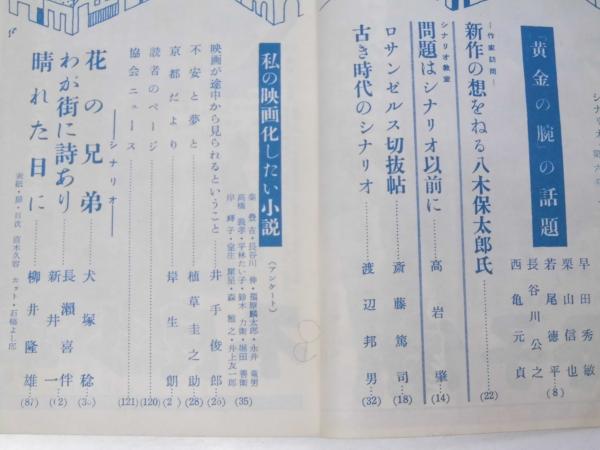 シナリオ 第六
『黄金の腕』の話題
早田秀敏
栗山信也
若尾徳平(8)
長谷川公之
西亀元貞
―作家訪問―
新作の想をねる八木保太郎氏……(22)
シナリオ教室
問題はシナリオ以前に……高岩肇(14)
ロサンゼルス切抜帖……斎藤篤司(18)
古き時代のシナリオ……渡辺邦男(32)
私の映画化したい小説
(アンケート)
秦豊吉・長谷川伸・福原麟太郎・永井竜男
高橋義孝・平林たい子・鈴木力衛・堀田善衛
岸輝子・室生犀星・森雅之・井上友一郎
(35)
映画が途中から見られるということ……井手俊郎(26)
不安と夢と……植草圭之助(28)
京都だより……岸生朗
読者のページ……(120)
協会ニュース……(121)
――シナリオ――
花の兄弟……犬塚稔
わが街に詩あり……長瀬喜伴 新井一
晴れた日に……柳井隆雄(87)
表紙・扉・目次 直木久蓉 カット・石橋よし郎